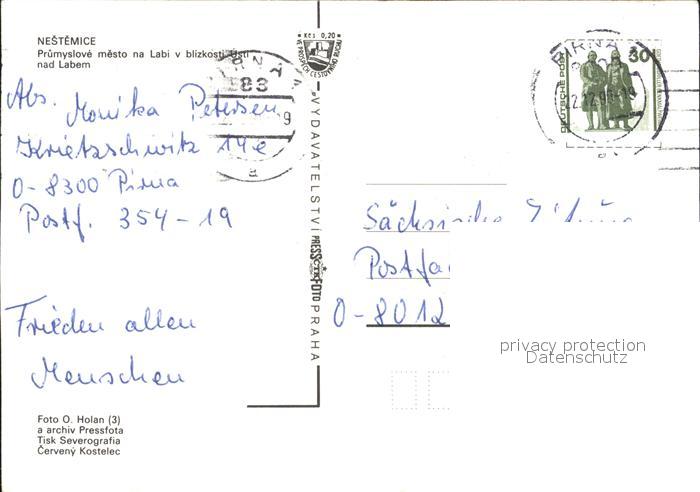 NEŠTĚMICE
Průmyslové město na Labi v blízkosti Ústí
nad Labem
Kčs 0,20
VE PROSPĚCH CESTOVNÍHO RUCHU
Abs. Monika Petersen
Krietzschwitz 14e
0-8300 Pirna
Postf. 354-19
Frieden allen
Menschen
Foto O. Holan (3)
a archiv Pressfota
Tisk Severografia
Červený Kostelec
VYDAVATELSTVÍ PRESSFOTO PRAHA
PIRNA
83
9
a
PIRNA
DEUTSCHE POST
30
Postfa
0-8012
privacy protection
Datenschutz